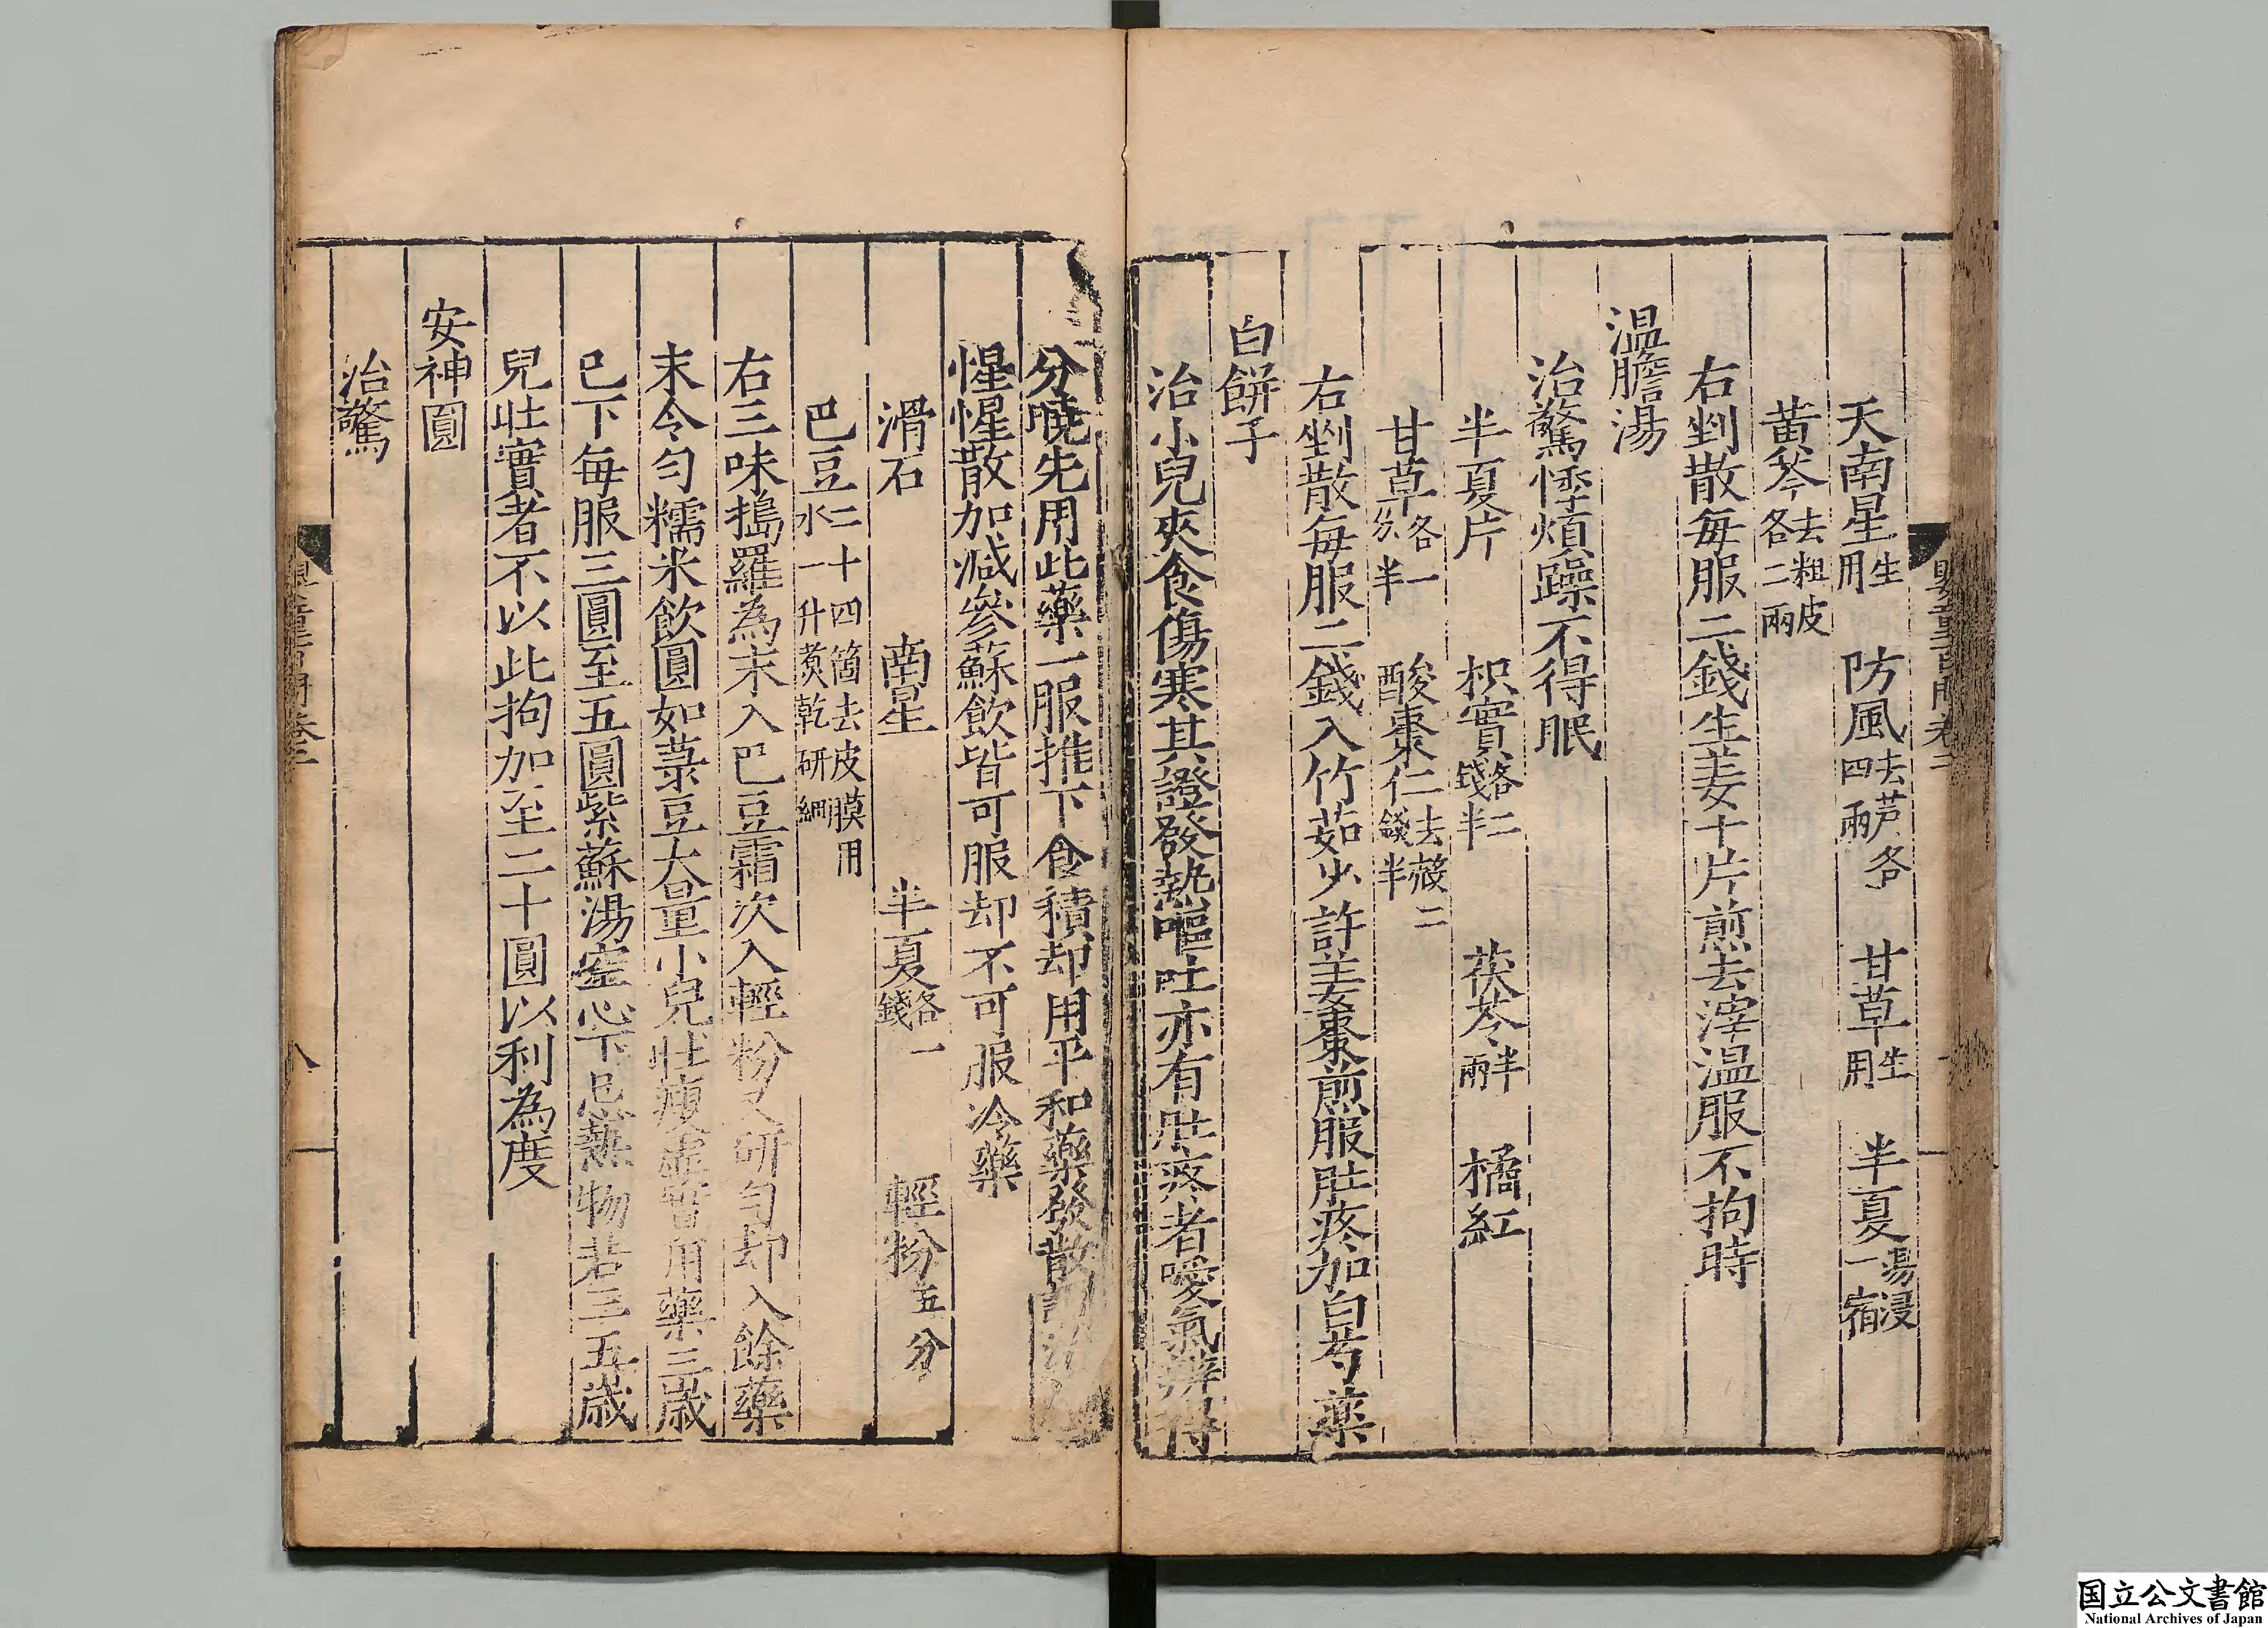 天南星生用　防風去芦各四兩　甘草生用　半夏湯浸一宿
黃芩去粗皮各二兩
右剉散每服二錢生姜十片煎去滓温服不拘時
温膽湯
治驚悸煩躁不得眠
半夏片　枳實各二錢半　茯苓半兩　橘紅
甘草各一分半　酸棗仁去殼二錢半
右剉散每服二錢入竹茹少許姜棗煎服肚疼加白芍藥
白餅子
治小兒夾食傷寒其證發熱嘔吐亦有肚疼者噯氣辨得
分曉先用此藥一服推下食積却用平和藥發散
惺惺散加减參蘇飲皆可服却不可服冷藥
滑石　南星　半夏各一錢　輕粉五分
巴豆二十四箇去皮膜用水一升煑乾研細
右三味搗羅為末入巴豆霜次入輕粉又研勻却入餘藥
末令勻糯米飲圓如菉豆大量小兒壯瘦虛實用藥三歲
已下每服三圓至五圓紫蘇湯空心下忌熱物若三五歲
兒壯實者不以此拘加至二十圓以利為度
安神圓
治驚
八
国立公文書館
National Archives of Japan